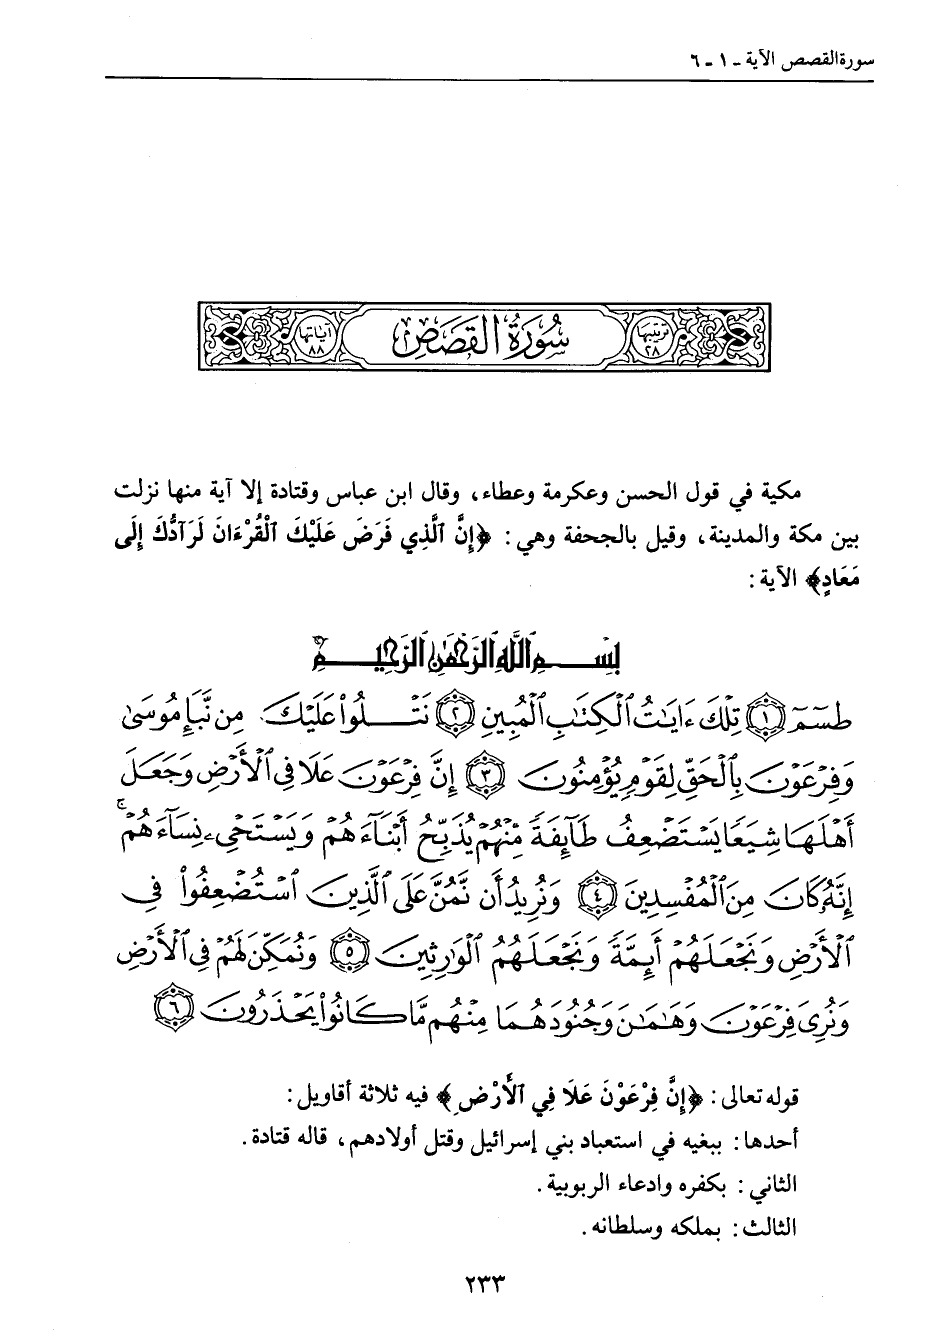 سورة القصص الآية ـ ١ ـ ٦
ترتيبها ٢٨
سُورَةُ القَصَصِ
آياتها ٨٨
مكية في قول الحسن وعكرمة وعطاء، وقال ابن عباس وقتادة إلا آية منها نزلت
بين مكة والمدينة، وقيل بالجحفة وهي: ﴿إِنَّ ٱلَّذِي فَرَضَ عَلَيْكَ ٱلْقُرْءَانَ لَرَآدُّكَ إِلَى
مَعَادٍ﴾ الآية:
بِسْمِ اللَّهِ الرَّحْمَٰنِ الرَّحِيمِ
طسٓمٓ ﴿١﴾ تِلْكَ ءَايَٰتُ ٱلْكِتَٰبِ ٱلْمُبِينِ ﴿٢﴾ نَتْلُواْ عَلَيْكَ مِن نَّبَإِ مُوسَىٰ
وَفِرْعَوْنَ بِٱلْحَقِّ لِقَوْمٍ يُؤْمِنُونَ ﴿٣﴾ إِنَّ فِرْعَوْنَ عَلَا فِى ٱلْأَرْضِ وَجَعَلَ
أَهْلَهَا شِيَعًا يَسْتَضْعِفُ طَآئِفَةً مِّنْهُمْ يُذَبِّحُ أَبْنَآءَهُمْ وَيَسْتَحْىِۦ نِسَآءَهُمْ ۚ
إِنَّهُۥ كَانَ مِنَ ٱلْمُفْسِدِينَ ﴿٤﴾ وَنُرِيدُ أَن نَّمُنَّ عَلَى ٱلَّذِينَ ٱسْتُضْعِفُواْ فِى
ٱلْأَرْضِ وَنَجْعَلَهُمْ أَئِمَّةً وَنَجْعَلَهُمُ ٱلْوَٰرِثِينَ ﴿٥﴾ وَنُمَكِّنَ لَهُمْ فِى ٱلْأَرْضِ
وَنُرِىَ فِرْعَوْنَ وَهَٰمَٰنَ وَجُنُودَهُمَا مِنْهُم مَّا كَانُواْ يَحْذَرُونَ ﴿٦﴾
قوله تعالى: ﴿إِنَّ فِرْعَوْنَ عَلَا فِي ٱلْأَرْضِ﴾ فيه ثلاثة أقاويل:
أحدها: ببغيه في استعباد بني إسرائيل وقتل أولادهم، قاله قتادة.
الثاني: بكفره وادعاء الربوبية.
الثالث: بملكه وسلطانه.
٢٣٣